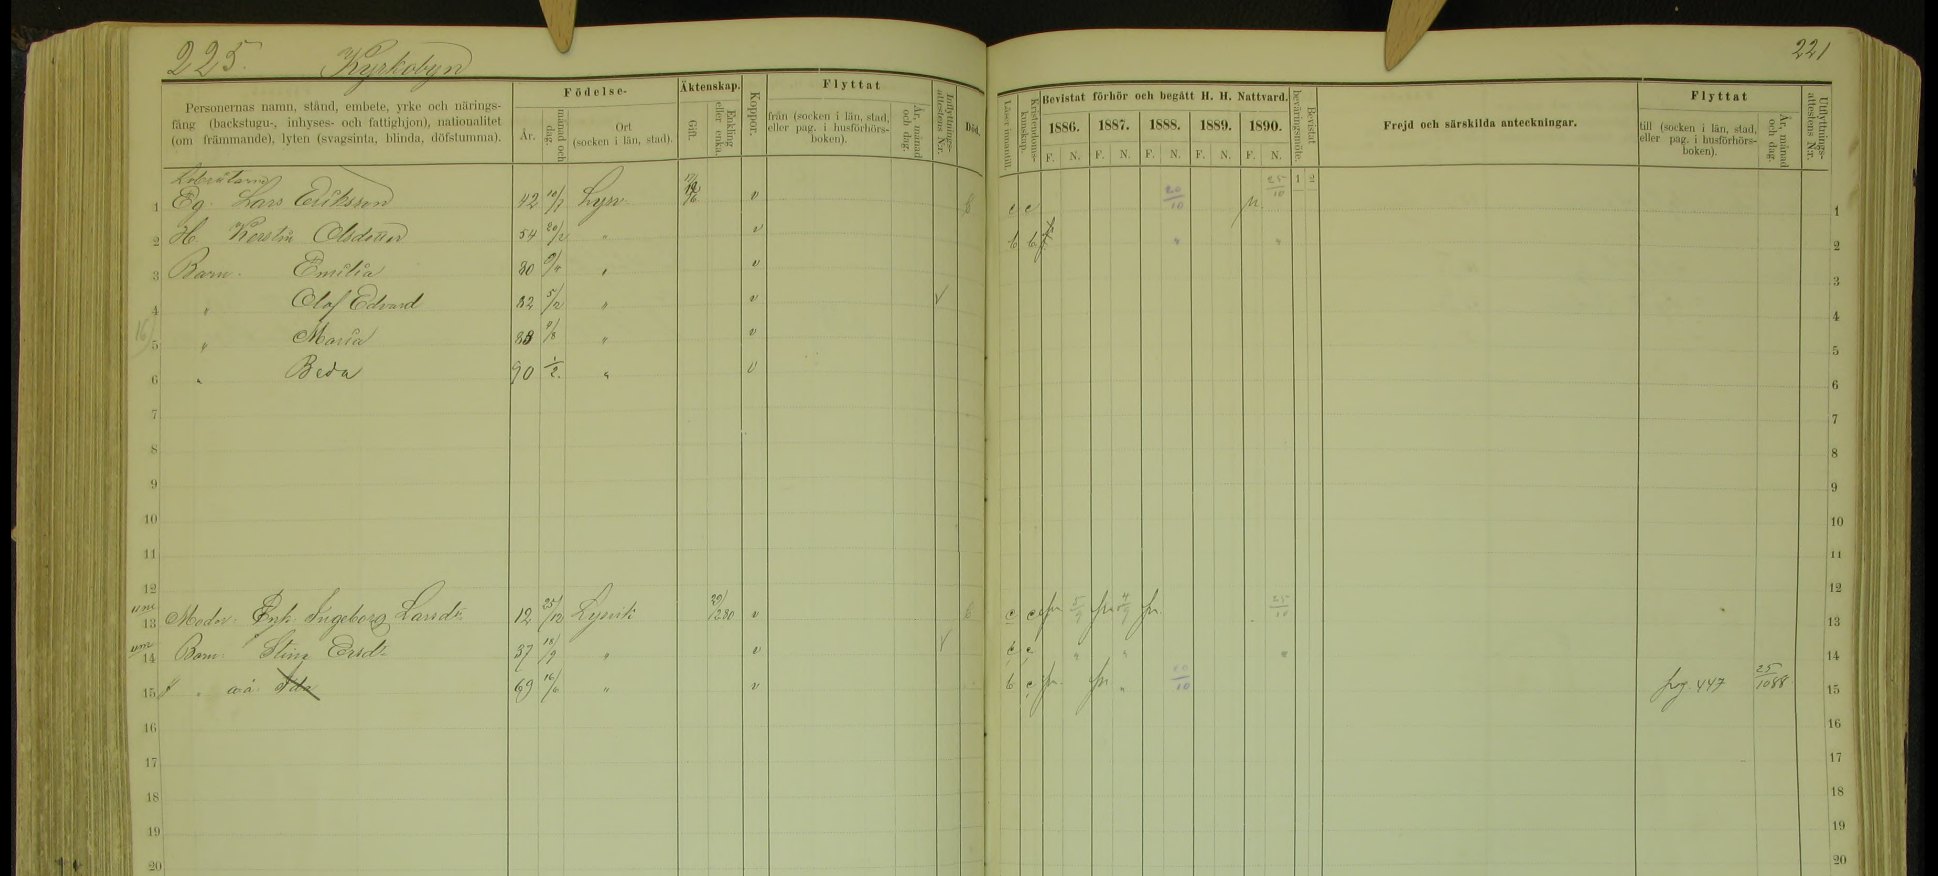 225. Kyrkobyn
221
Personernas namn, stånd, embete, yrke och närings-
fång (backstugu-, inhyses- och fattighjon), nationalitet
(om främmande), lyten (svagsinta, blinda, döfstumma).
Födelse-
År.
månad och dag.
Ort
(socken i län, stad).
Äktenskap.
Gift.
Enkling eller enka.
Koppor.
Flyttat
från (socken i län, stad,
eller pag. i husförhörs-
boken).
År, månad och dag.
Inflyttnings-attestens N:r.
Död.
Läser innantill.
Kristendoms-kunskap.
Bevistat förhör och begått H. H. Nattvard.
1886. 1887. 1888. 1889. 1890.
F. N. F. N. F. N. F. N. F. N.
Bevistat beväringsmöte.
1 2
Frejd och särskilda anteckningar.
Flyttat
till (socken i län, stad,
eller pag. i husförhörs-
boken).
År, månad och dag.
Utflyttnings-attestens N:r.
1 Eg. Lars Eriksson 42 Lysv. v c c 20/10 25/10 1
2 H. Kerstin Olsdotter 54 20/2 " v b b " " 2
3 Barn. Emilia 80 " v 3
4 " Olof Edvard 82 5/2 " v 4
5 " Maria " v 5
6 " Beda 90 1/2. " v 6
7 7
8 8
9 9
10 10
11 11
12 12
13 Moder. Enk. Ingeborg Larsdr 12 25/12 Lysvik 29/12 80 v c c fr 5/9 fr 4/9 fr. 25/10 13
14 Barn. Stina Ersdr 37 18/9 " v c c " " " 14
15 " oä. Ida 69 16/6 " v b c fr. fr. " 20/10 pg. 447 25/10 88 15
16 16
17 17
18 18
19 19
20 20